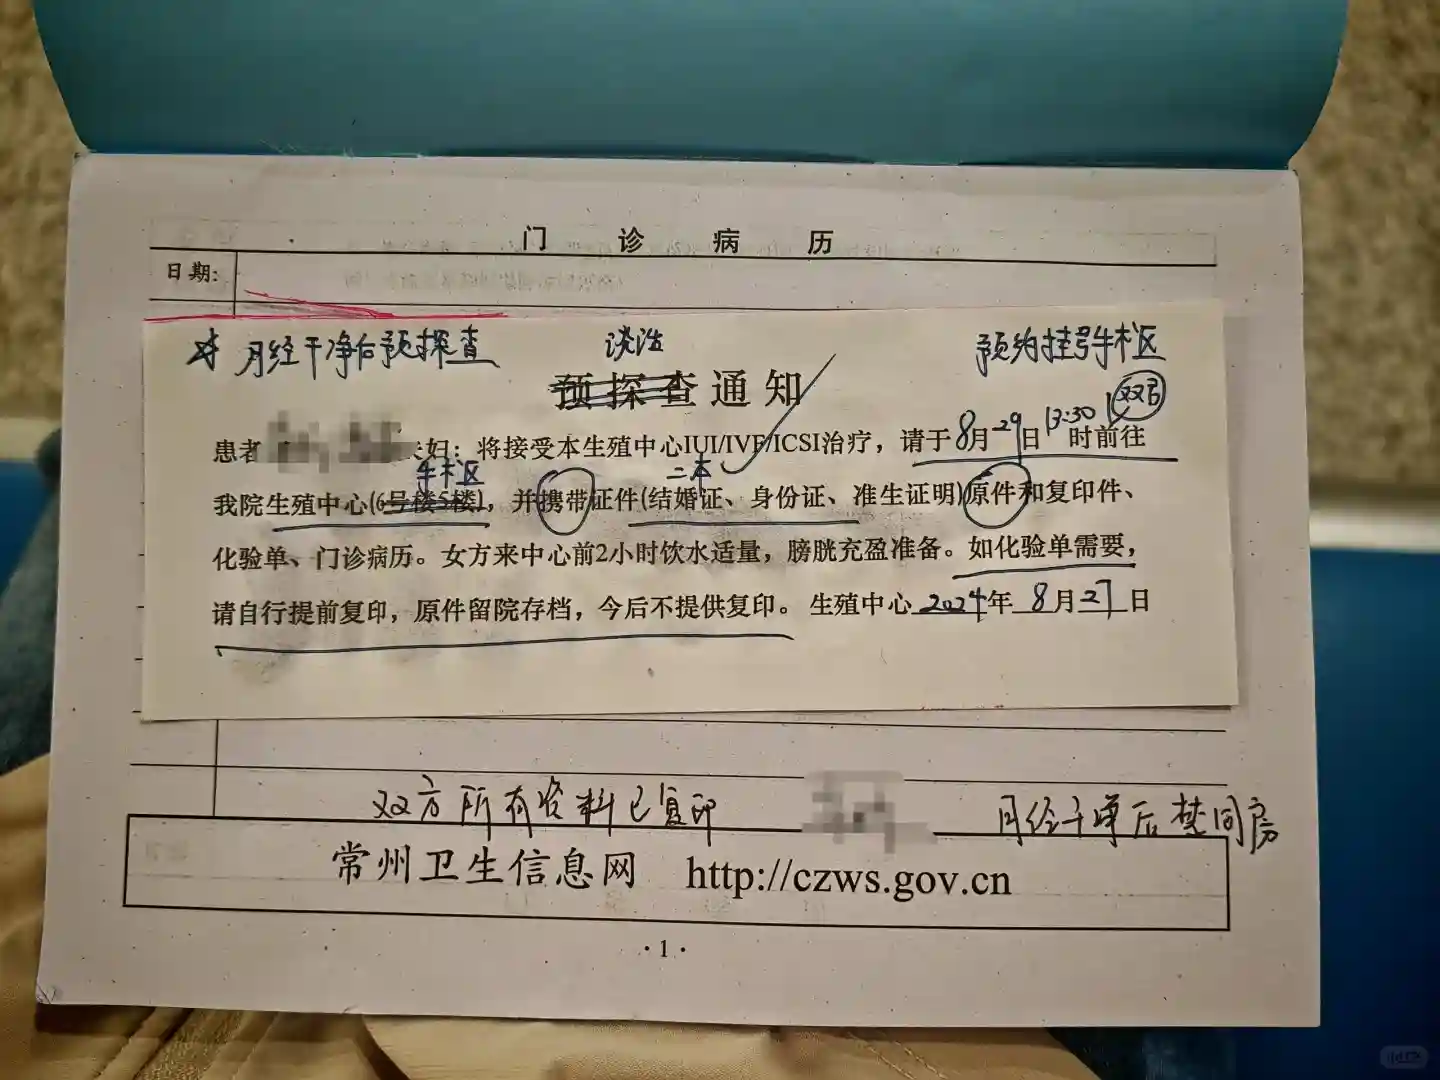 门诊病历
日期:
月经干净后预探查
谈话
预约挂号牛棚区
预探查通知
双君
患者 夫妇：将接受本生殖中心IUI/IVF/ICSI治疗，请于8月29日13:30时前往
二本
我院生殖中心(6号楼5楼)，并携带证件(结婚证、身份证、准生证明)原件和复印件、
化验单、门诊病历。女方来中心前2小时饮水适量，膀胱充盈准备。如化验单需要，
请自行提前复印，原件留院存档，今后不提供复印。 生殖中心2024年8月27日
双方所有资料已复印
月经干净后禁同房
常州卫生信息网 http://czws.gov.cn
·1·